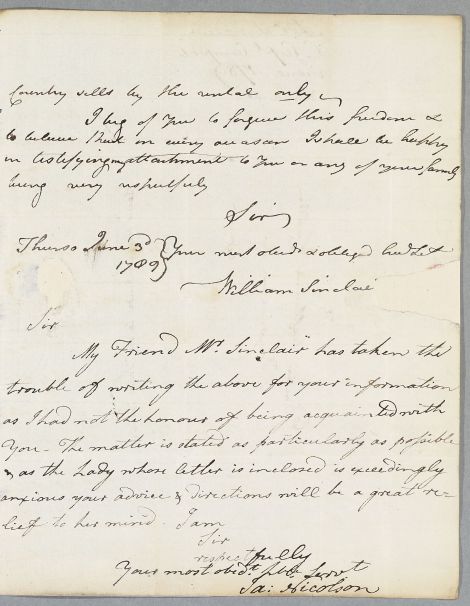 Country sells by the rental only
I beg of You to forgive this freedom &
to believe that on every occasion I shall be happy
in testifying my attachment to You or any of your family
being very respectfully
Sir
Thurso June 3d
1789 } Your most obedt & obliged
William Sinclair
Sir
My Friend Mr. Sinclair has taken the
trouble of writing the above for your information
as I had not the honour of being acquainted with
You - The matter is stated as particularly as possible
& as the Lady whose letter is inclosed is exceedingly
anxious your advice & directions will be a great re-
lief to her mind. I am
Sir
respectfully
Your most obedt. Servt
Ja: Nicolson